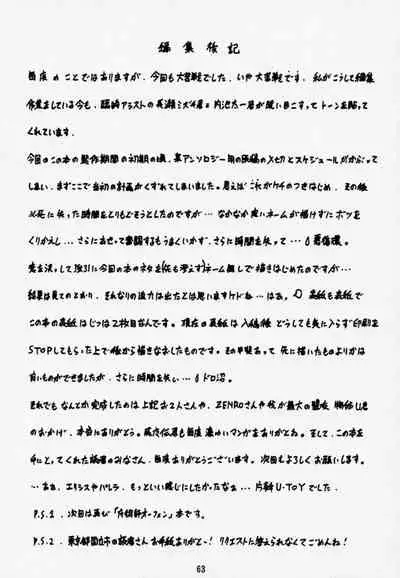 編集後記
毎度のことではありますが、今回も大苦戦でした。いや大苦戦です。私がこうして編集
作業をしている今も、臨時アシストの長瀬ミズ
くれています。
今回のこの本の製作期間の初期の頃、某アンソロジー用の原稿の〆切とスケジュールがかぶって
しまい、まずここで当初の計画がくずれてしまいました。思えばこれがケチのつきはじめ、その後
失った時間をとりもどそうとしたのですが…なかなか良いネームが描けずにボツを
くりかえし…さらにあせって奮闘するもうまくいかず、さらに時間を失って…悪循環。
今回の本のネタを(何も考えず)ネーム無しで描きはじめたのですが…
結果は見てのとおり、それなりの迫力は出たとは思いますケドね…はぁ。表紙も表紙で
この本の表紙はじつは2枚目なんです。現在の表紙は入稿後どうしても気に入らず印刷を
STOPしてもらった上で後から描きなおしたものです。その甲斐あって先に描いたものよりかは
良いものができましたが、さらに時間を失い…ドロ沼。
それでもなんとか完成したのは上記お2人さんや、ZENROさんや我が最大の盟友
のおかげ、本当にありがとう。毎度濃ゆいマンガをありがとね。そして、この本を
手にとってくれた読者のみなさん、毎度ありがとうございます。次回もよろしくお願いします。
…あぁ、エキシスやパレラ、もっといい感じにしたかったなぁ…片軒U-TOYでした。
P.S.1. 次回は再び「片桐軒オーフェン」本です。
P.S.2. 東京都国立市の読者さんお手紙ありがとー! リクエストに答えられなくてごめんね!
63